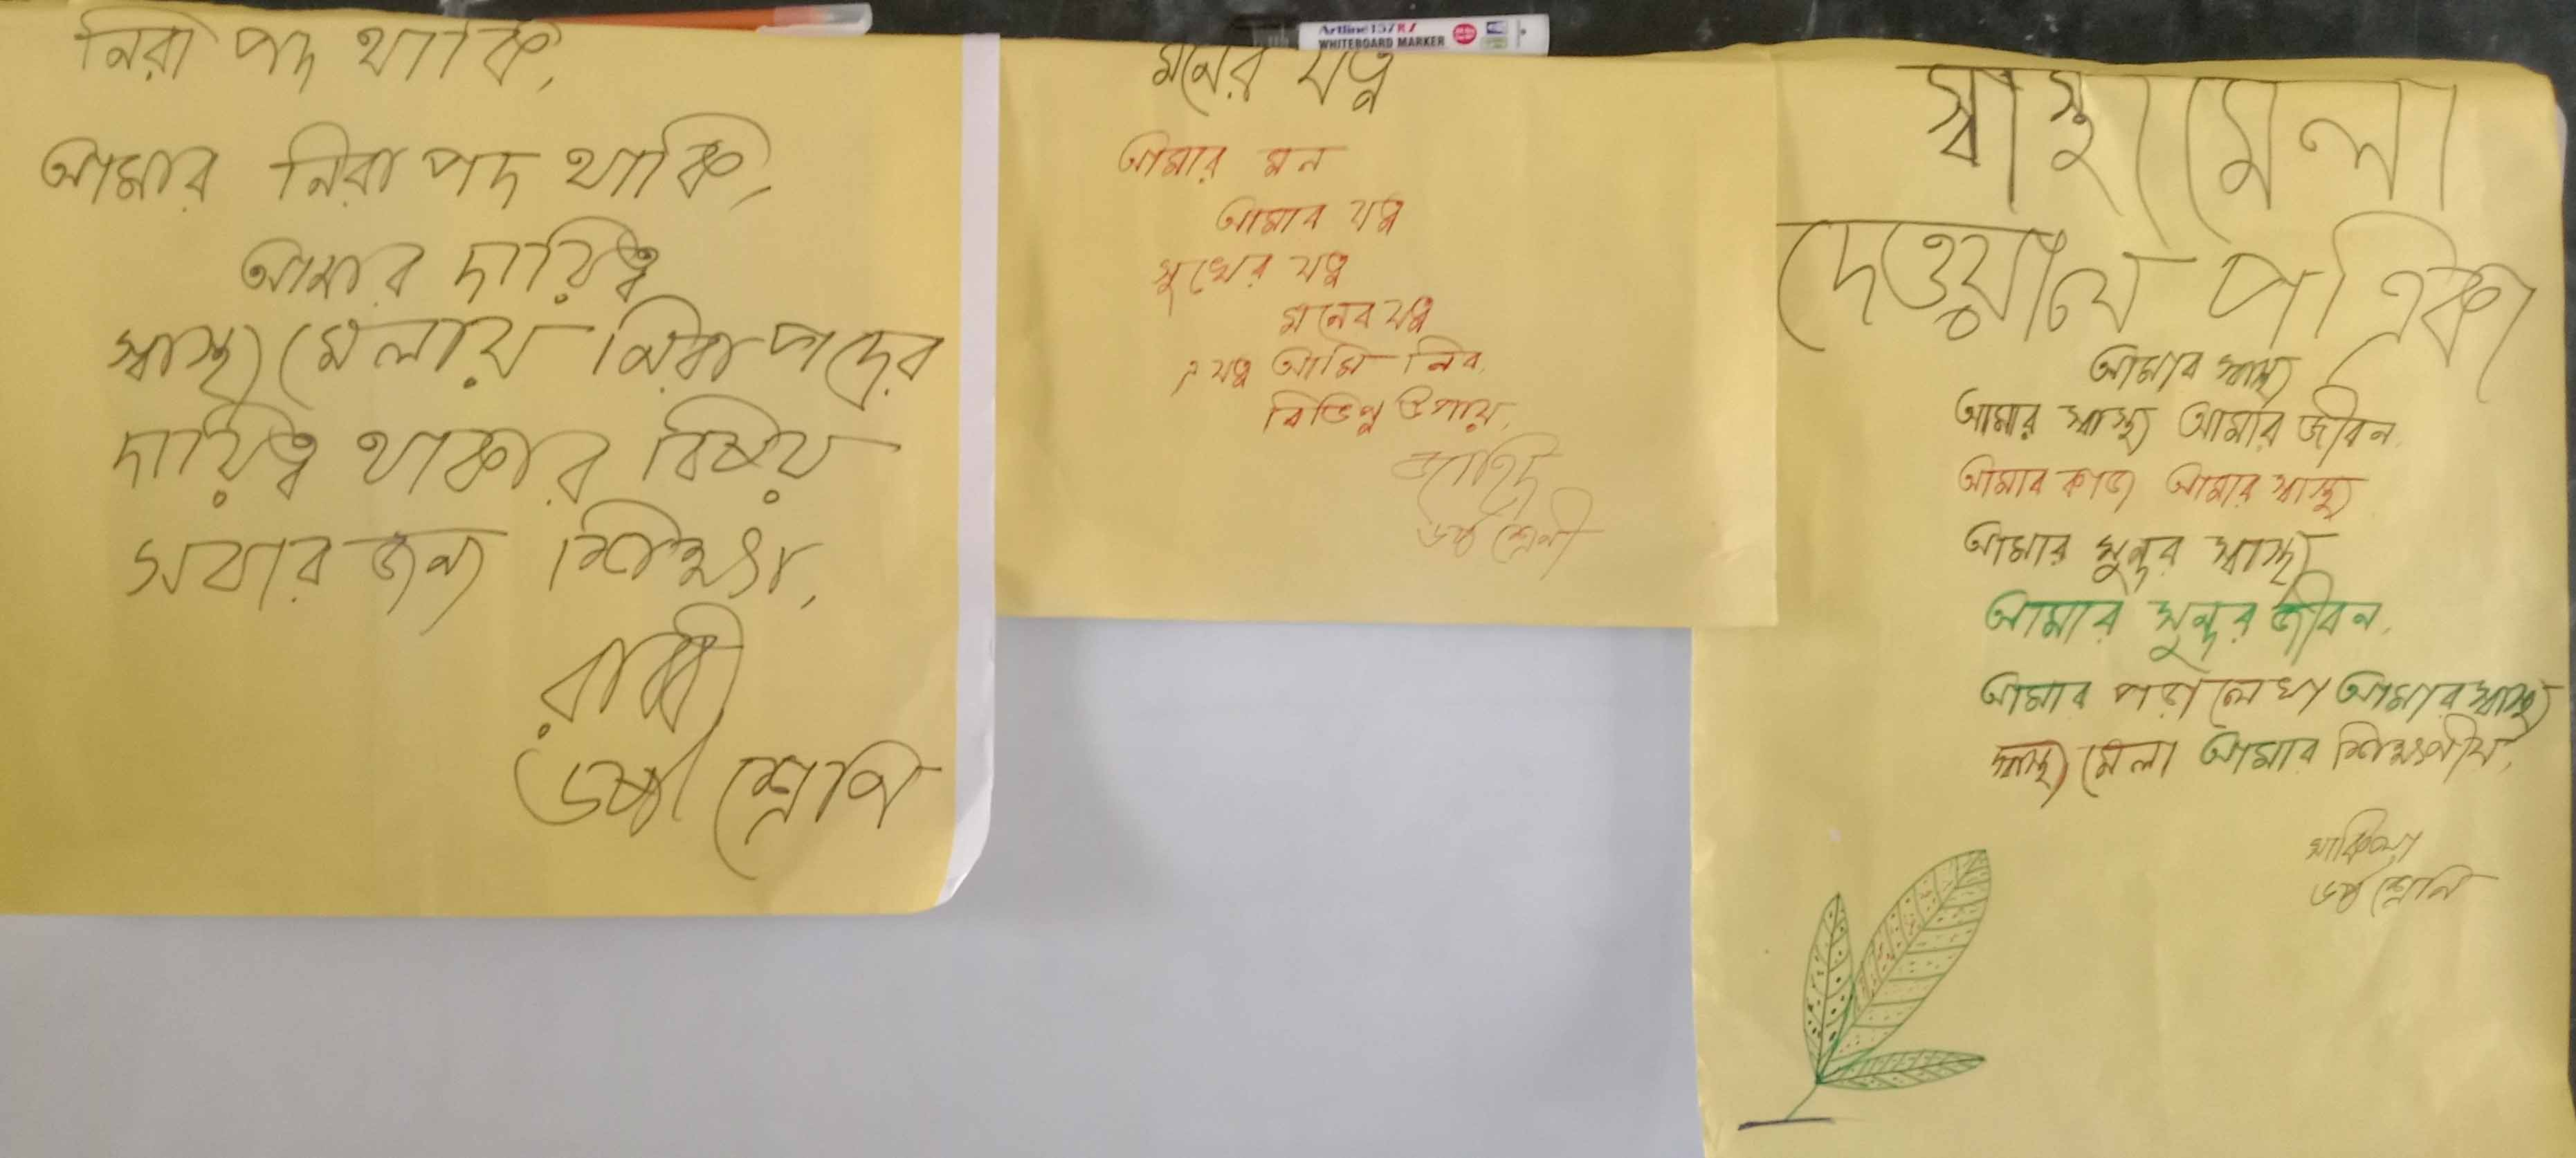 নিরা পদ থাকি,
আমার নিরা পদ থাকি,
আমার দায়িত্ব
স্বাস্থ্য মেলায় নিরা পদের
দায়িত্ব থাকার বিষয়
সবার জন্য শিক্ষা,
রাব্বী
৬ষ্ঠ শ্রেণি
Artline 157R
WHITEBOARD MARKER
মনের যত্ন
আমার মন
আমার যত্ন
মুখের যত্ন
মনের যত্ন
এ যত্ন আমি নিব,
বিভিন্ন উপায়,
৬ষ্ঠ শ্রেনী
স্বাস্থ্য মেলা
দেওয়াল পত্রিকা
আমার স্বাস্থ্য
আমার স্বাস্থ্য আমার জীবন,
আমার কাজ আমার স্বাস্থ্য
আমার সুন্দর স্বাস্থ্য
আমার সুন্দর জীবন,
আমার পড়া লেখা আমার স্বাস্থ্য
স্বাস্থ্য মেলা আমার শিক্ষণীয়,
৬ষ্ঠ শ্রেনি